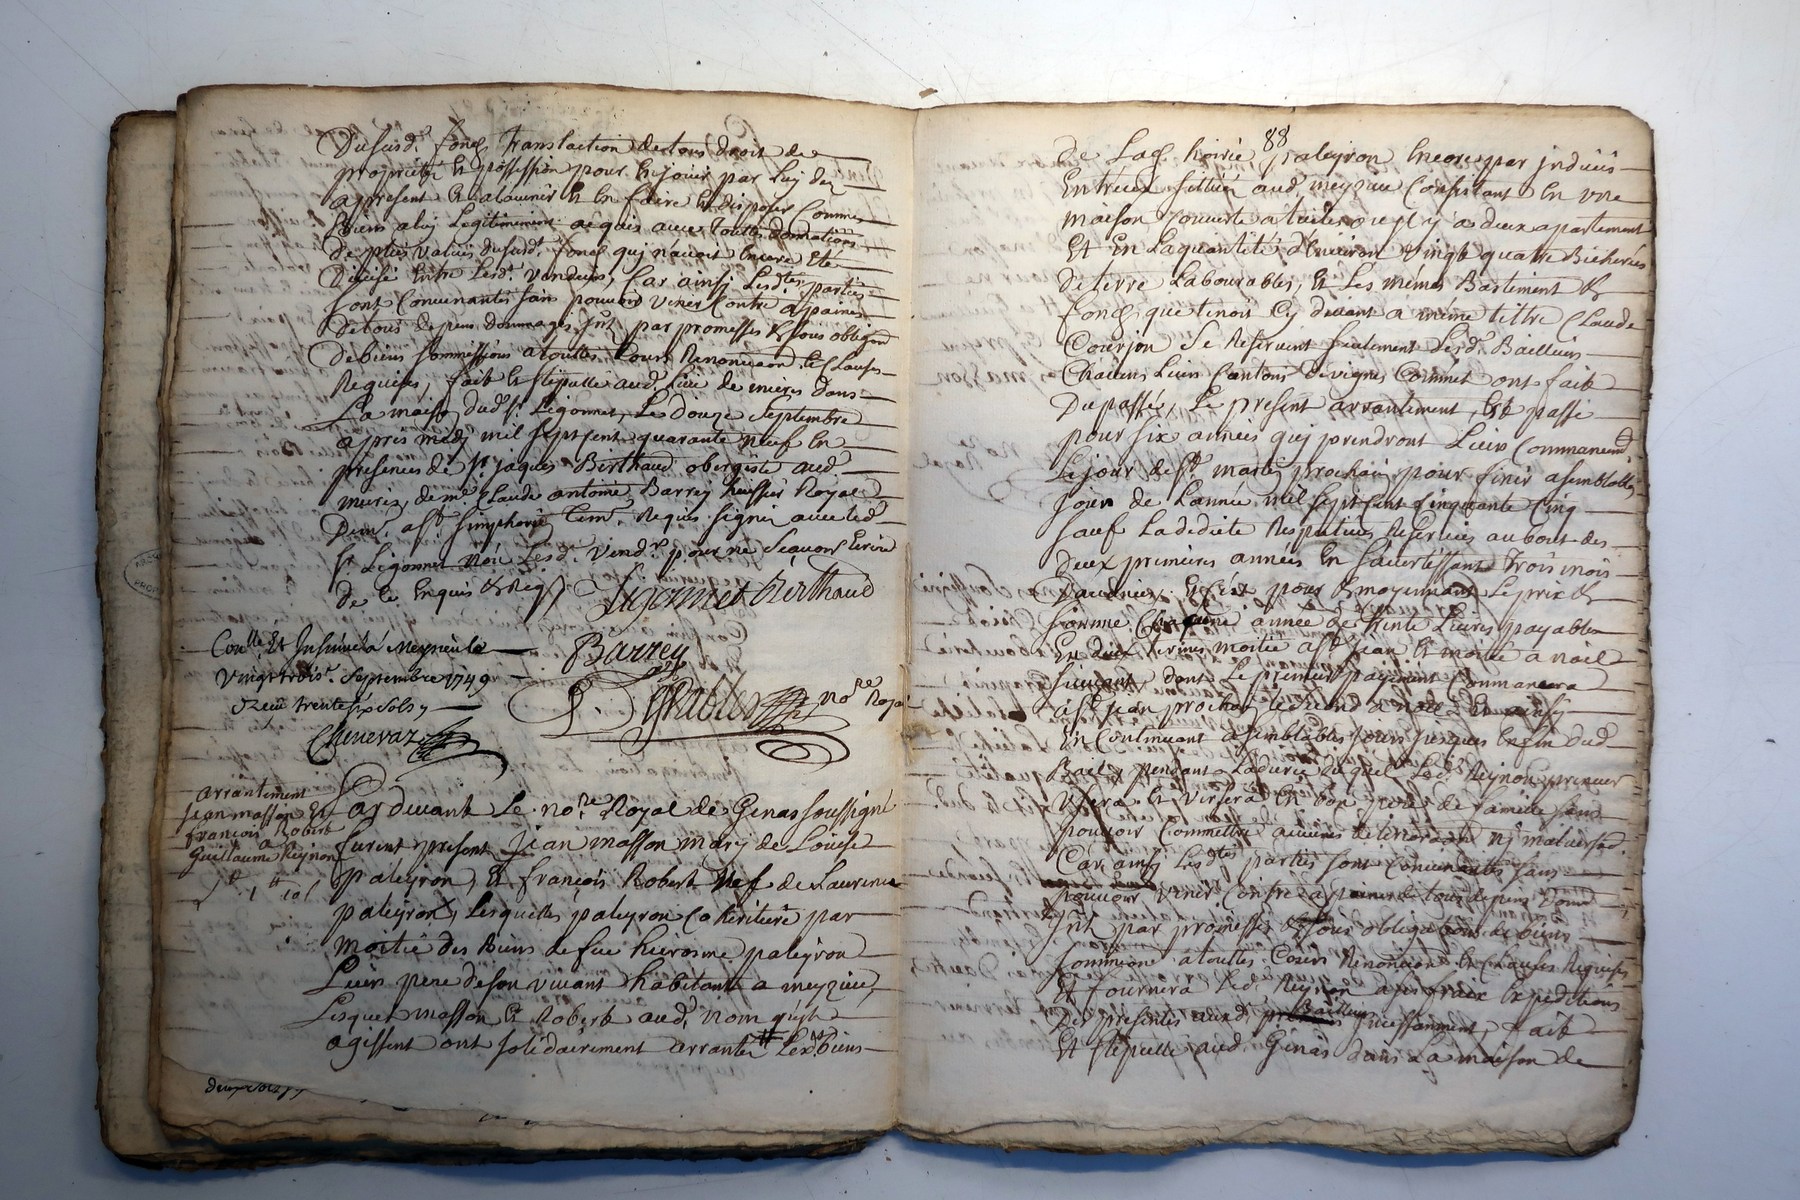 Dususd. fong translaction de tous droit de
propriété et possession pour en jouir par luy dez
apresent et alavenir et en faire et disposer comme
biens aluy legitimement acquis avec touttes donnations
de plus values dususd. fong quy n'avoit encore été
divisé entre lesd. vendeurs, Car ainsy lesdtes parties
sont convenantes sans pouvoir venir contre apaines
detous depens dommages jnt par promesses & sous obligaon
de biens sommissions atouttes cours Renonciaon et clauses
Requises, fait et stipullé aud. lieu de mures dans
La maison dud sr. Ligonnet, Le douze septembre
après midy mil sept sent quarante neuf en
presences de sr. jaques Birthaud obergiste aud
mures, de me Claude antoine Barrey huissier Royal
Dem. a st. simphorie tem. Requis signé avec led
sr. Ligonnet Non Lesd. vend.rs pour ne sçavoir Ecrire
de ce Enquis & Reqs
Ligonnet Birthaud
Barrey
No.re Royal
Con.lle Et Insinué à Meyzieu le
vingt trois. Septembre 1749
Receu trente six sols
Chenevaz
arrantement
jean masson Et
françois Robert
a
Guillaume Reynon
Pardevant Le no.re Royal de Genas soussigné
furent present Jean masson mary de Louise
paleyron, Et françois Robert Nef de Laurence
paleyron, Lesquelles paleyron Cohéritière par
moitié des Biens de feu hierosme paleyron
Leur pere deson vivant habitant a meyzieu,
Lesquels masson Et Robert aud. nom qu'ils
agissent ont solidairement arranté Les biens
deux vots
88
de Lad. hoirie paleyron Encore par jndivis
Entreux sittués aud. meyzieu Consistant En une
maison couverte a tuiles ou il y a deux apartement
Et En Laquantité d'Environ vingt quatre Bicherées
deterre Labourables, Et Les mêmes Bastiment &
fong que tenoit Cy devant a même tittre Claude
Courjon se Reservent seulement Lesd. Bailleurs
Chacuns Leurs Cantons de vignes Comme ont fait
Du passé, Le present arrantement Est passé
pour six années quy prendront Leurs Commancemt
Le jour de st. martin prochain pour finir asemblable
jour de Lannée mil sept sent Cinquante Cinq
sauf La dedicte Respective Reservée au bout des
deux premieres années En s'avertissant trois mois
Daudvier. Et C'est pour & moyennant Le prix &
somme Chacune année de trente Livres payable
En deux termes moitié a st. jean Et moitié a noel
suivant dont Le premier payement Commancera
a st. jean prochain Le second a noel Et ainsy
En Continuant asemblables jours jusques Enfin dud
Bail, pendant Ladurée duquel Led. Reynon preneur
usera Et versera En bon pere de famille sans
pouvoir Commettre aucunes deterioraon ny malversaon.
Car ainsy Lesdtes parties sont Convenantes sans
pouvoir venir Contre apaine de tous depens domm
jnt par promesses & sous obligations de biens
sommissions atouttes Cours Renonciaons Et Clauses Requises
Et fournira Led. Reynon a ses fraix Expeditions
Des presentes auxd. Bailleurs jncessamment, Fait
Et stipullé aud. Genas dans La maison de